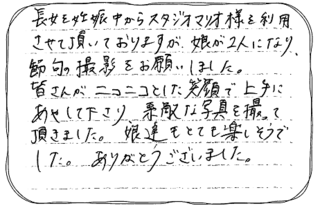 長女を妊娠中からスタジオマリオ様を利用
させて頂いておりますが、娘が2人になり、
節句の撮影をお願いしました。
皆さんがニコニコとした笑顔で上手に
あやして下さり、素敵な写真を撮って
頂きました。娘達もとても楽しそうで
した。ありがとうございました。